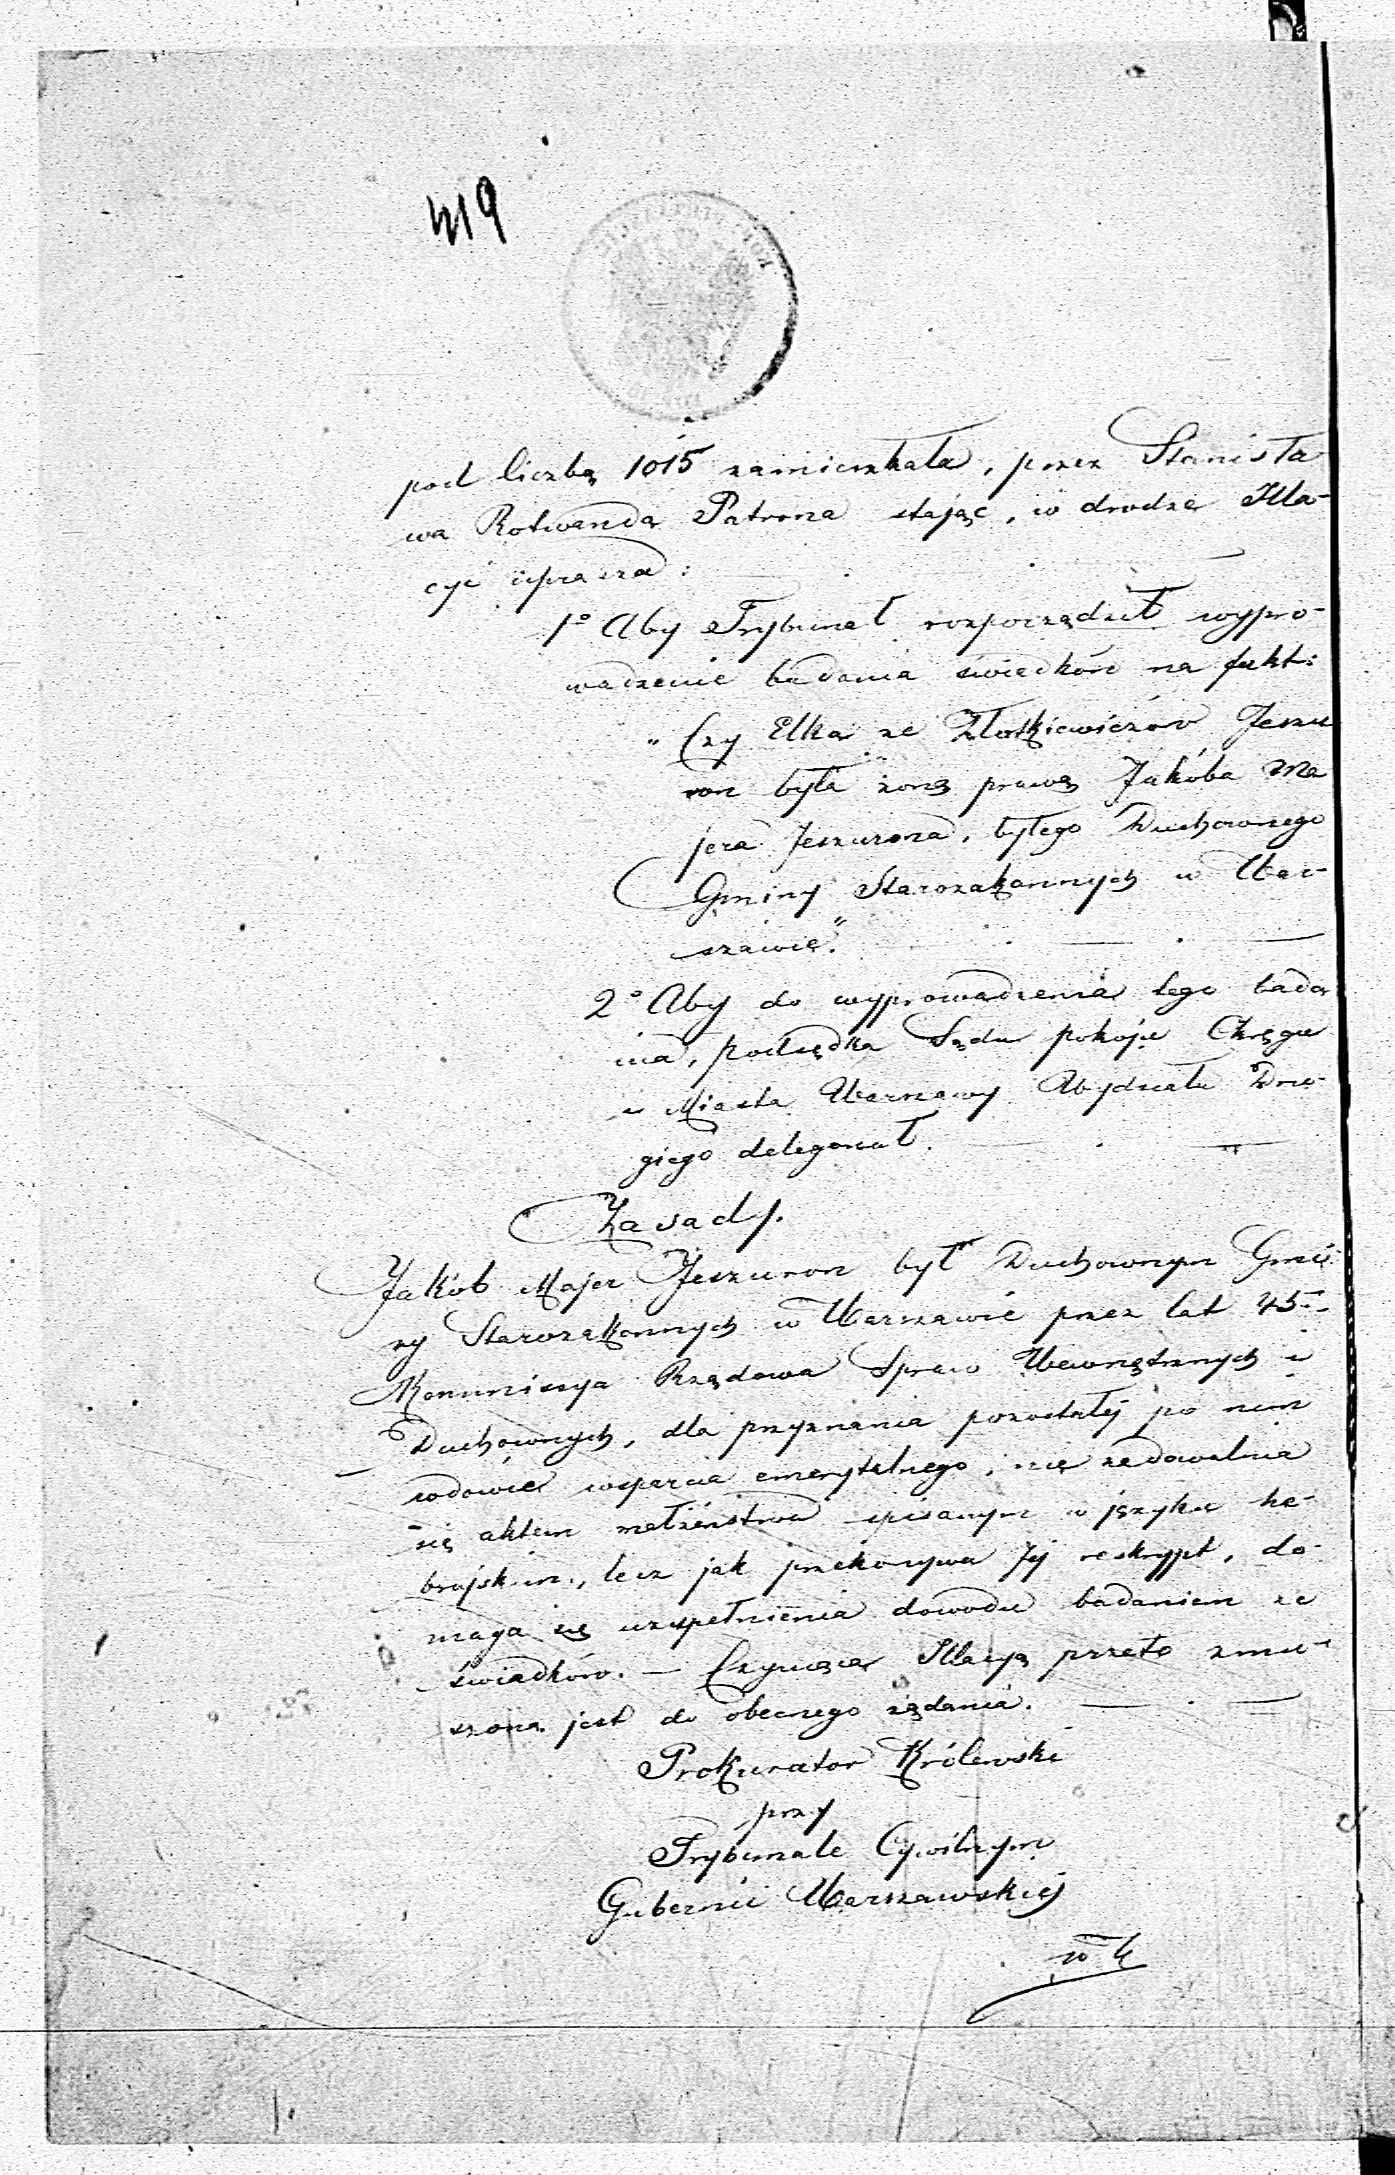 419
pod liczbą 1015 zamieszkała, przez Stanisła
wa Rotwanda Patrona stając, w drodze Illa-
cyi uprasza:
1° Aby Trybunał rozporządził wypro-
wadzenie badania świadków na fakt:
„Czy Elka ze Złotkiewiczów Jeszu
ron była żoną prawą Jakóba Ma
jera Jeszurona, byłego Duchownego
Gminy Starozakonnych w War-
szawie."
2° Aby do wyprowadzenia tego bada
nia, podsędka Sądu pokoju Okręgu
i Miasta Warszawy Wydziału Dru-
giego delegował.
Zasady.
Jakób Majer Jeszuron był Duchownym Gmi
ny Starozakonnych w Warszawie przez lat 45
Kommissya Rządowa Spraw Wewnętrznych i
Duchownych, dla przyznania pozostałéj po nim
wdowie wsparcia emerytalnego, nie zadowalnia
się aktem małżeństwa spisanym w języku he-
brajskim, lecz jak przekonywa Jéj reskrypt, do-
maga się uzupełnienia dowodu badaniem ze
świadków. — Czyniąca Illacyą przeto zmu-
szoną jest do obecnego żądania.
Prokurator Królewski
przy
Trybunale Cywilnym
Gubernii Warszawskiéj